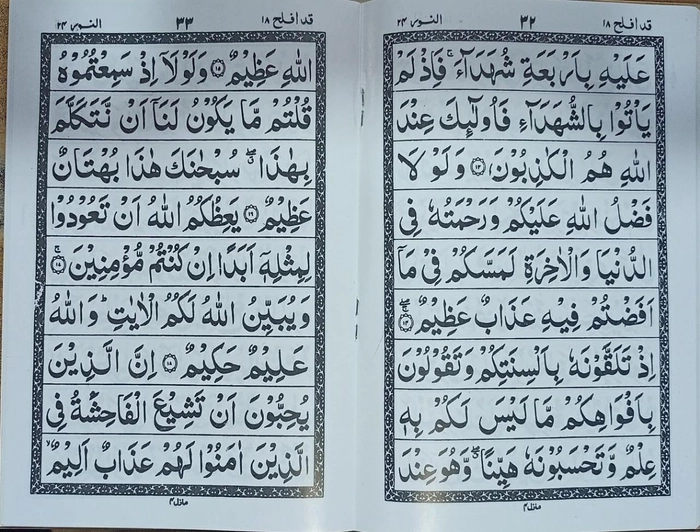 قد افلح ١٨ ٣٢ النور ٢٤
عَلَيْهِ بِاَرْبَعَةِ شُهَدَآءَ ۚ فَاِذْ لَمْ
يَاْتُوْا بِالشُّهَدَآءِ فَاُولٰٓئِكَ عِنْدَ
اللّٰهِ هُمُ الْكٰذِبُوْنَ ﴿۱۳﴾ وَلَوْ لَا
فَضْلُ اللّٰهِ عَلَيْكُمْ وَرَحْمَتُهٗ فِى
الدُّنْيَا وَالْاٰخِرَةِ لَمَسَّكُمْ فِىْ مَاۤ
اَفَضْتُمْ فِيْهِ عَذَابٌ عَظِيْمٌ ﴿۱۴﴾
اِذْ تَلَقَّوْنَهٗ بِاَلْسِنَتِكُمْ وَتَقُوْلُوْنَ
بِاَفْوَاهِكُمْ مَّا لَيْسَ لَكُمْ بِهٖ
عِلْمٌ وَّتَحْسَبُوْنَهٗ هَيِّنًا ۖ وَّهُوَ عِنْدَ
منزل ۴
قد افلح ١٨ ٣٣ النور ٢٤
اللّٰهِ عَظِيْمٌ ﴿۱۵﴾ وَلَوْ لَاۤ اِذْ سَمِعْتُمُوْهُ
قُلْتُمْ مَّا يَكُوْنُ لَنَاۤ اَنْ نَّتَكَلَّمَ
بِهٰذَا ۖ سُبْحٰنَكَ هٰذَا بُهْتَانٌ
عَظِيْمٌ ﴿۱۶﴾ يَعِظُكُمُ اللّٰهُ اَنْ تَعُوْدُوْا
لِمِثْلِهٖۤ اَبَدًا اِنْ كُنْتُمْ مُّؤْمِنِيْنَ ۚ ﴿۱۷﴾
وَيُبَيِّنُ اللّٰهُ لَكُمُ الْاٰيٰتِ ؕ وَاللّٰهُ
عَلِيْمٌ حَكِيْمٌ ﴿۱۸﴾ اِنَّ الَّذِيْنَ
يُحِبُّوْنَ اَنْ تَشِيْعَ الْفَاحِشَةُ فِى
الَّذِيْنَ اٰمَنُوْا لَهُمْ عَذَابٌ اَلِيْمٌ ۙ
منزل ۴